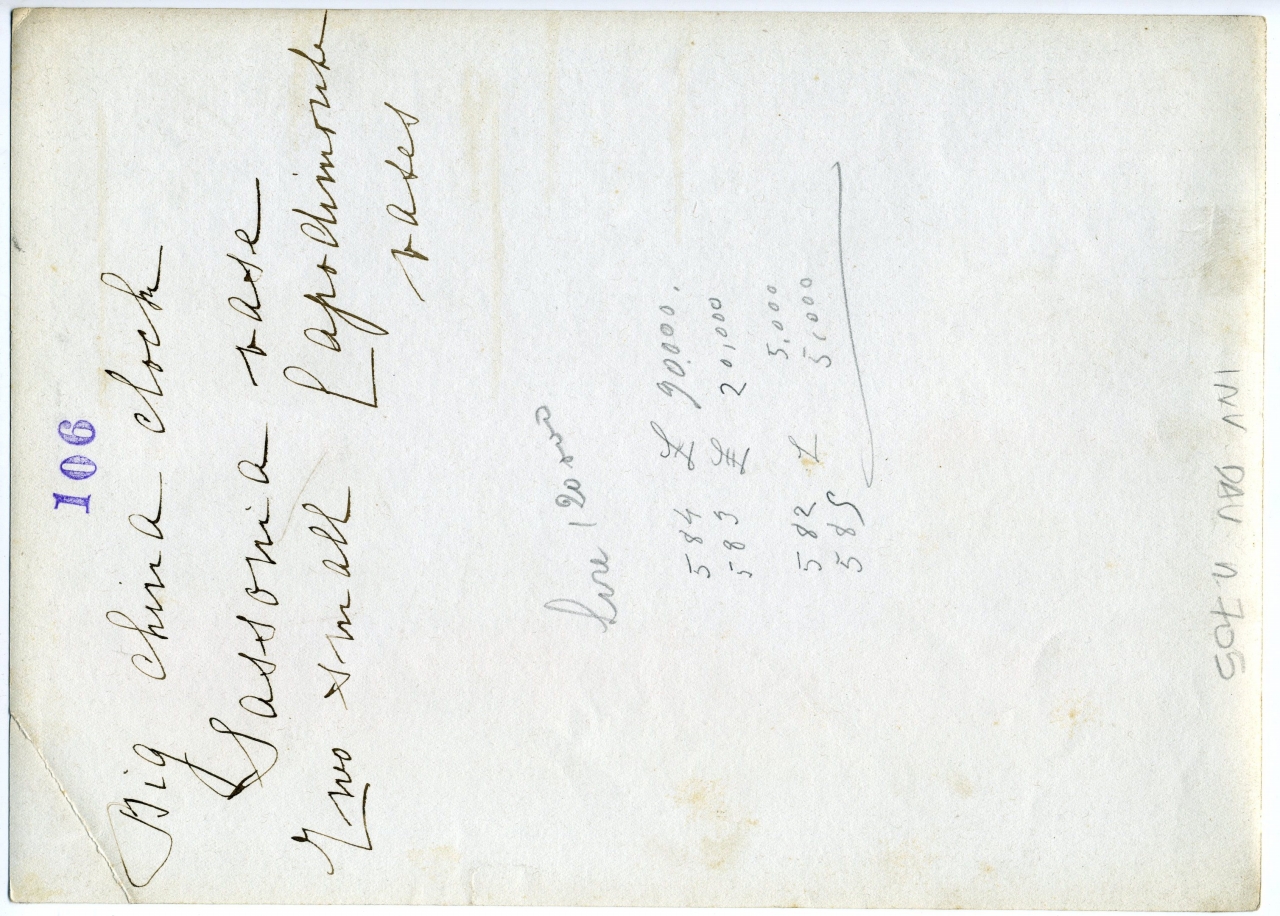 106
Big china clock
Sassonia vase
Two small Capodimonte
vases
Lire 120
584 £ 90.000.
583 £ 20,000
5.000
582 £ 5,000
585
INV DAU n 705